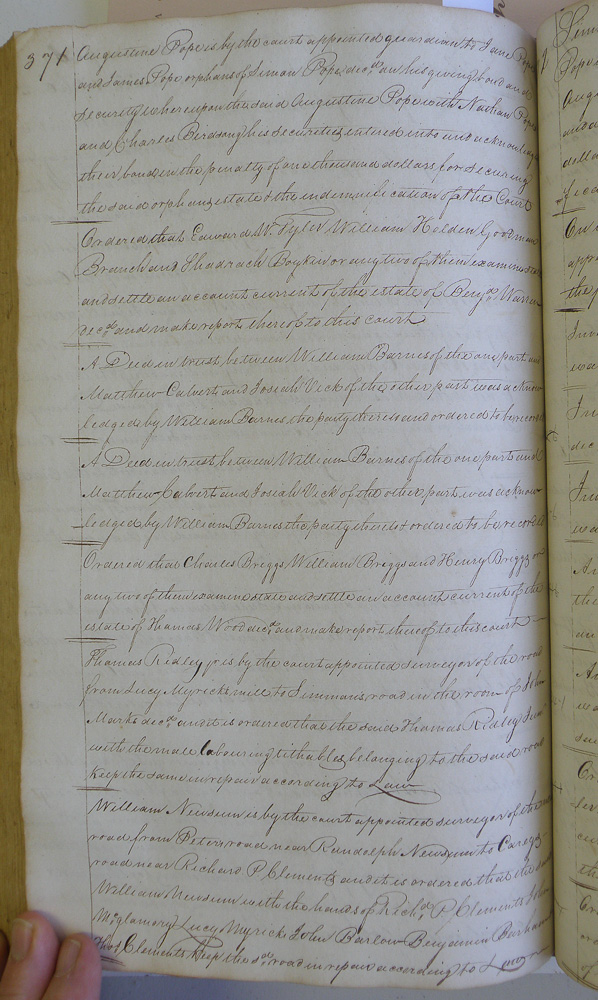 371
Augustine Pope is by the court appointed guardian to Jane Pope
and James Pope orphans of Simon Pope, decd. on his giving bond and
security whereupon the said Augustine Pope with Nathan Pope
and Charles Birdsong his securities entered into and acknowledged
their bond in the penalty of one thousand dollars, for securing
the said orphans estate & the indemnification of the Court
Ordered that Edward W. Tyler William Holden Goodman
Branch and Shadrach Boykin or any two of them examine state
and settle an account current of the estate of Benja. Warren
decd. and make report thereof to this court
A Deed in trust between William Barnes of the one part and
Matthew Calvert and Josiah Vick of the other part was acknow-
ledged by William Barnes, the party thereto and ordered to be recor
A Deed in trust between William Barnes of the one part and
Matthew Calvert and Josiah Vick of the other part was acknow-
ledged by William Barnes the party thereto & ordered to be recorded
Ordered that Charles Briggs William Briggs and Henry Briggs or
any two of them examine state and settle an account current of the
estate of Thomas Wood decd. and make report thereof to this court
Thomas Ridley jr is by the court appointed surveyor of the road
from Lucy Myricks mill to Simmons road in the room of John
Marks decd. and it is ordered that the said Thomas Ridley Jun
with the male labouring tithables belonging to the said road
keep the same in repair according to Law
William Newsum is by the court appointed surveyor of the
road from Peters road near Randolph Newsum to Careys
road near Richard P Clements and it is ordered that the said
William Newsum with the hands of Richd. P. Clements John
McGlamory Lucy Myrick John Barlow Benjamin Barham
Thos Clements keep the sd. road in repair according to Law